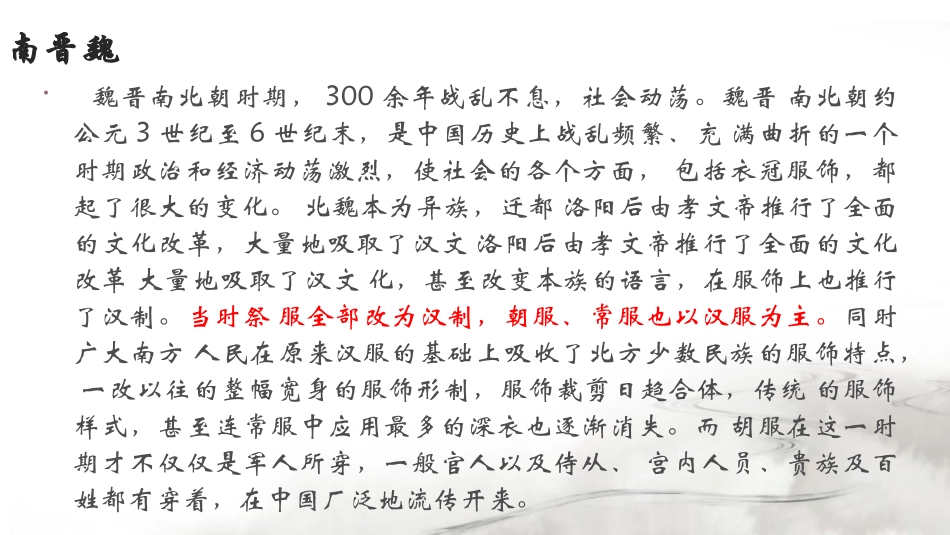 南晋魏
魏晋南北朝时期，300 余年战乱不息，社会动荡。魏晋 南北朝约
公元 3 世纪至 6 世纪末，是中国历史上战乱频繁、充 满曲折的一个
时期政治和经济动荡激烈，使社会的各个方面， 包括衣冠服饰，都
起了很大的变化。 北魏本为异族，迁都 洛阳后由孝文帝推行了全面
的文化改革，大量地吸取了汉文 洛阳后由孝文帝推行了全面的文化
改革 大量地吸取了汉文 化，甚至改变本族的语言，在服饰上也推行
了汉制。当时祭 服全部改为汉制，朝服、常服也以汉服为主。同时
广大南方 人民在原来汉服的基础上吸收了北方少数民族的服饰特点，
一改以往的整幅宽身的服饰形制，服饰裁剪日趋合体，传统 的服饰
样式，甚至连常服中应用最多的深衣也逐渐消失。而 胡服在这一时
期才不仅仅是军人所穿，一般官人以及侍从、 宫内人员、贵族及百
姓都有穿着，在中国广泛地流传开来。